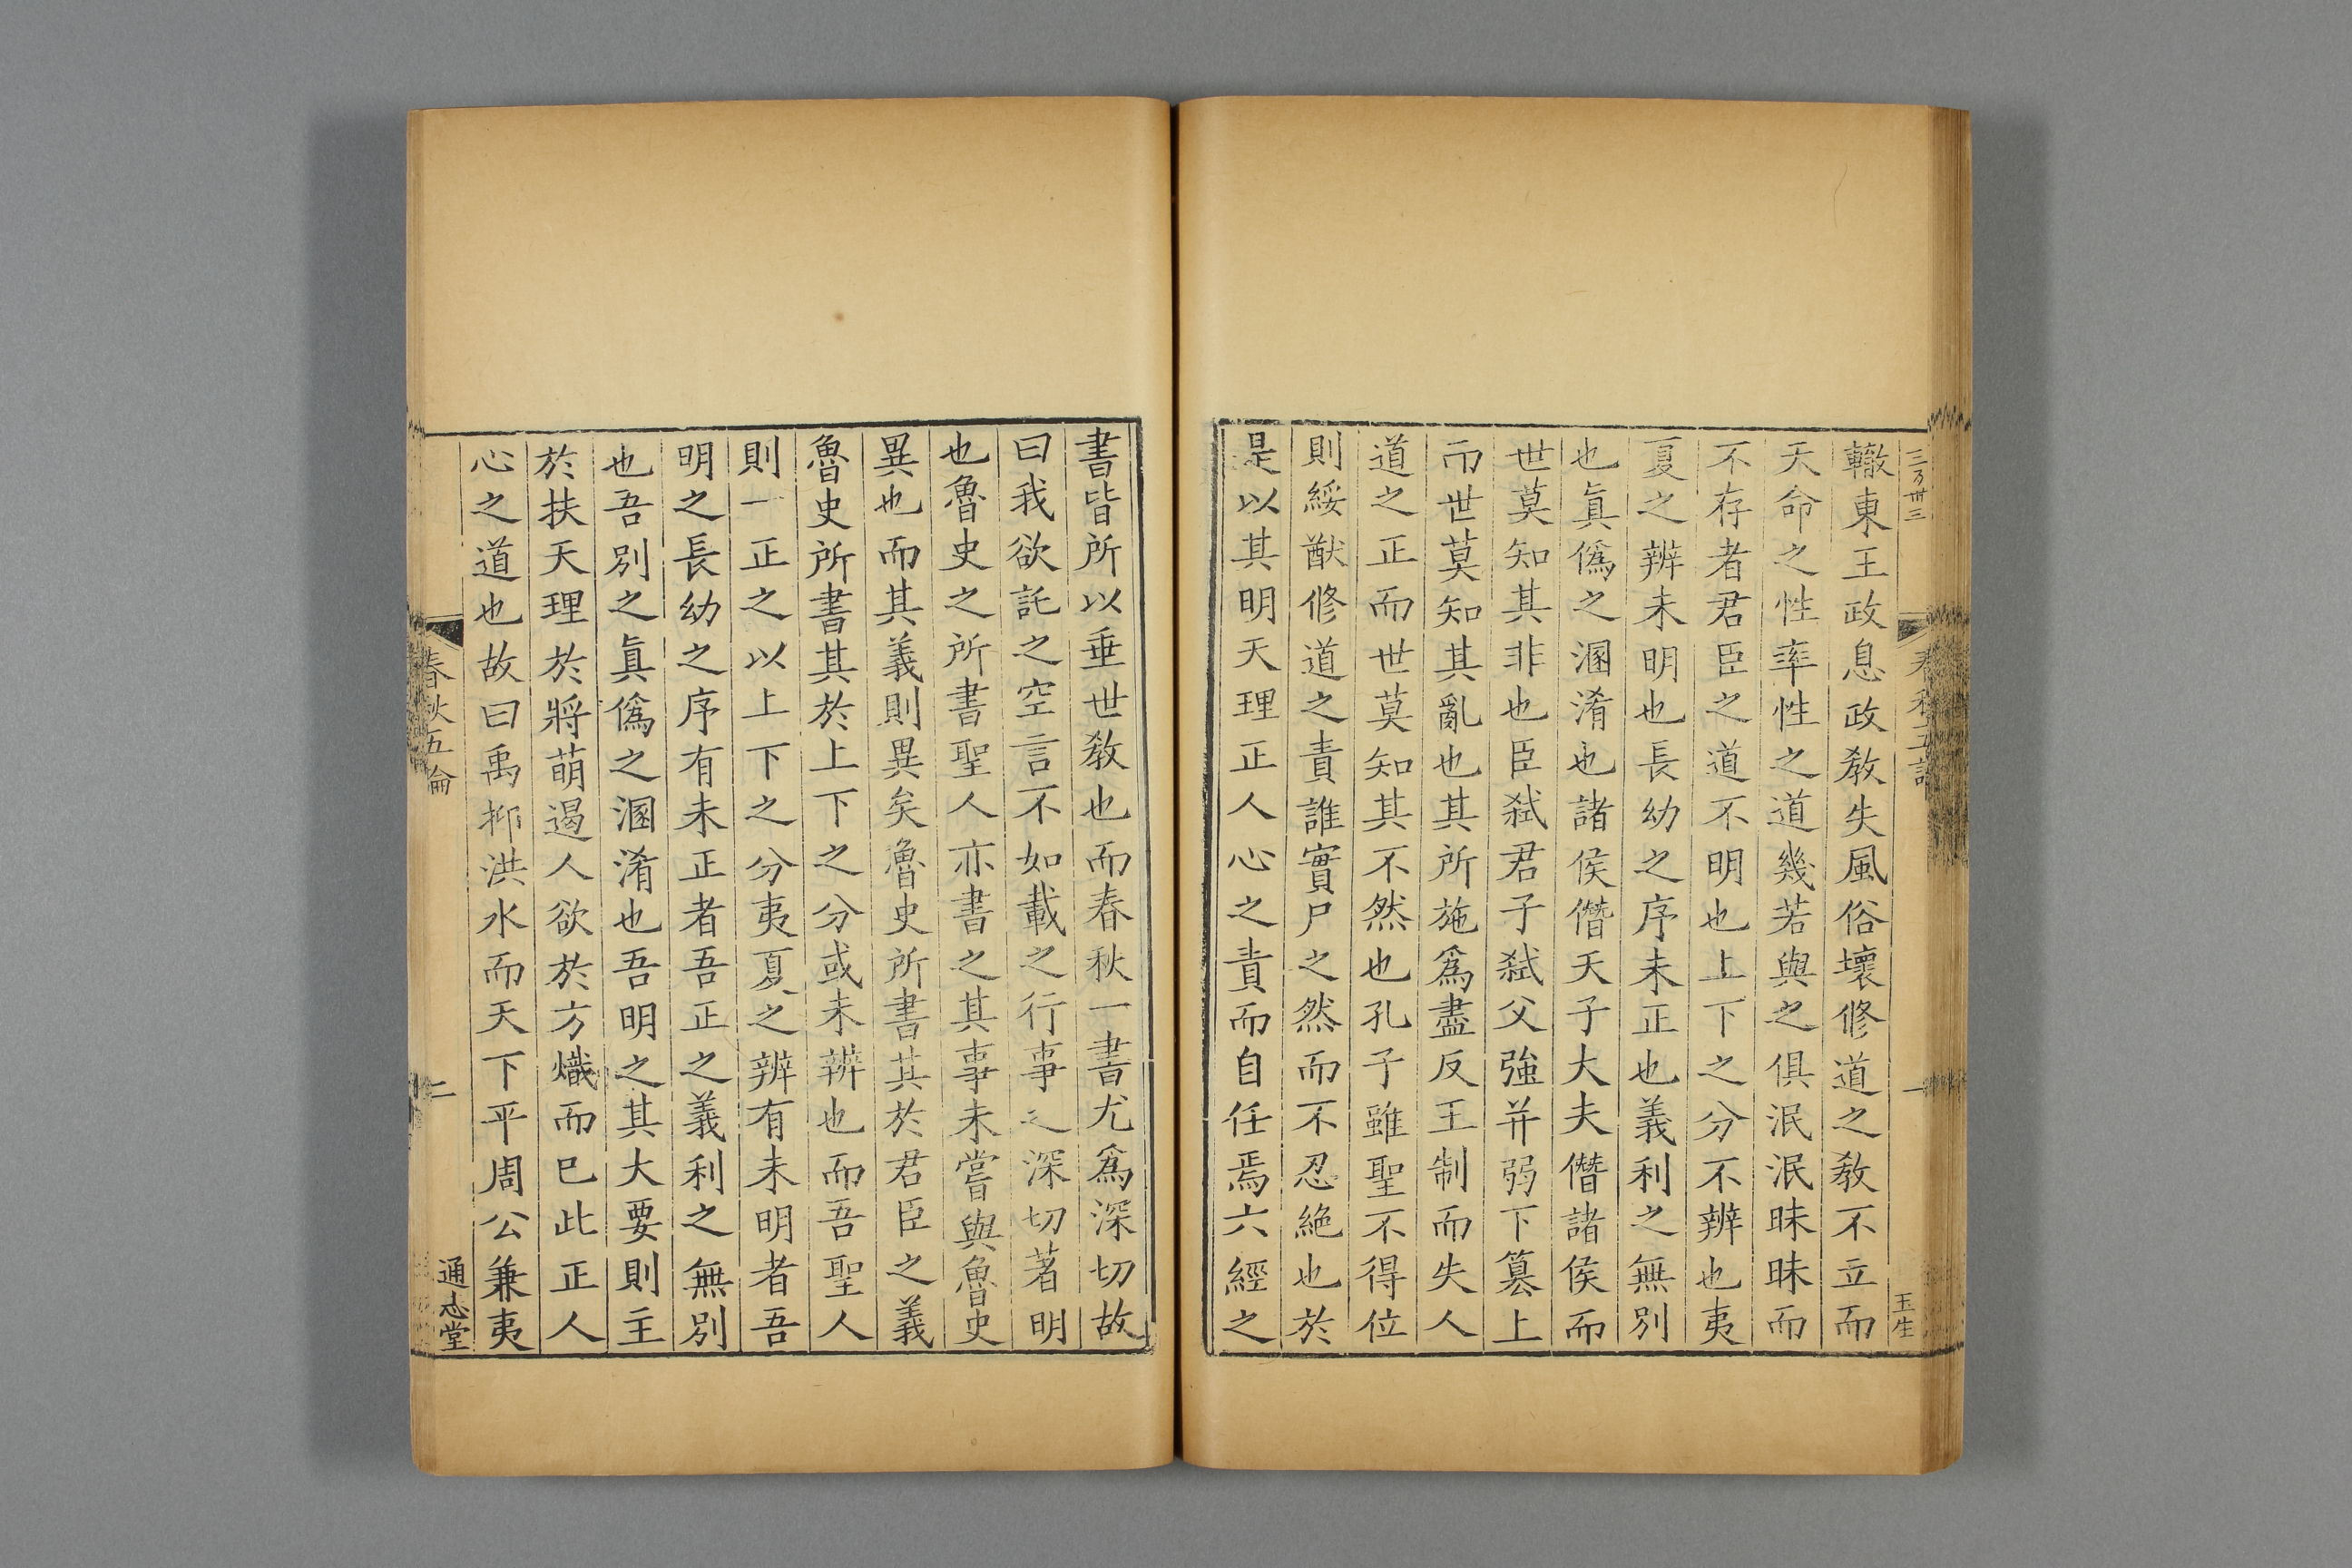 轍東王政息政教失風俗壞修道之教不立而
天命之性率性之道幾若與之俱泯泯昧昧而
不存者君臣之道不明也上下之分不辨也夷
夏之辨未明也長幼之序未正也義利之無別
也眞僞之溷淆也諸侯僭天子大夫僭諸侯而
世莫知其非也臣弑君子弑父強并弱下簒上
而世莫知其亂也其所施爲盡反王制而失人
道之正而世莫知其不然也孔子雖聖不得位
則綏猷修道之責誰實尸之然而不忍絶也於
是以其明天理正人心之責而自任焉六經之
書皆所以垂世教也而春秋一書尤爲深切故
曰我欲託之空言不如載之行事之深切著明
也魯史之所書聖人亦書之其事未嘗與魯史
異也而其義則異矣魯史所書其於君臣之義
魯史所書其於上下之分或未辨也而吾聖人
則一正之以上下之分夷夏之辨有未明者吾
明之長幼之序有未正者吾正之義利之無別
也吾別之眞僞之溷淆也吾明之其大要則主
於扶天理於將萌遏人欲於方熾而已此正人
心之道也故曰禹抑洪水而天下平周公兼夷
春秋五論
二
通志堂
一
王生